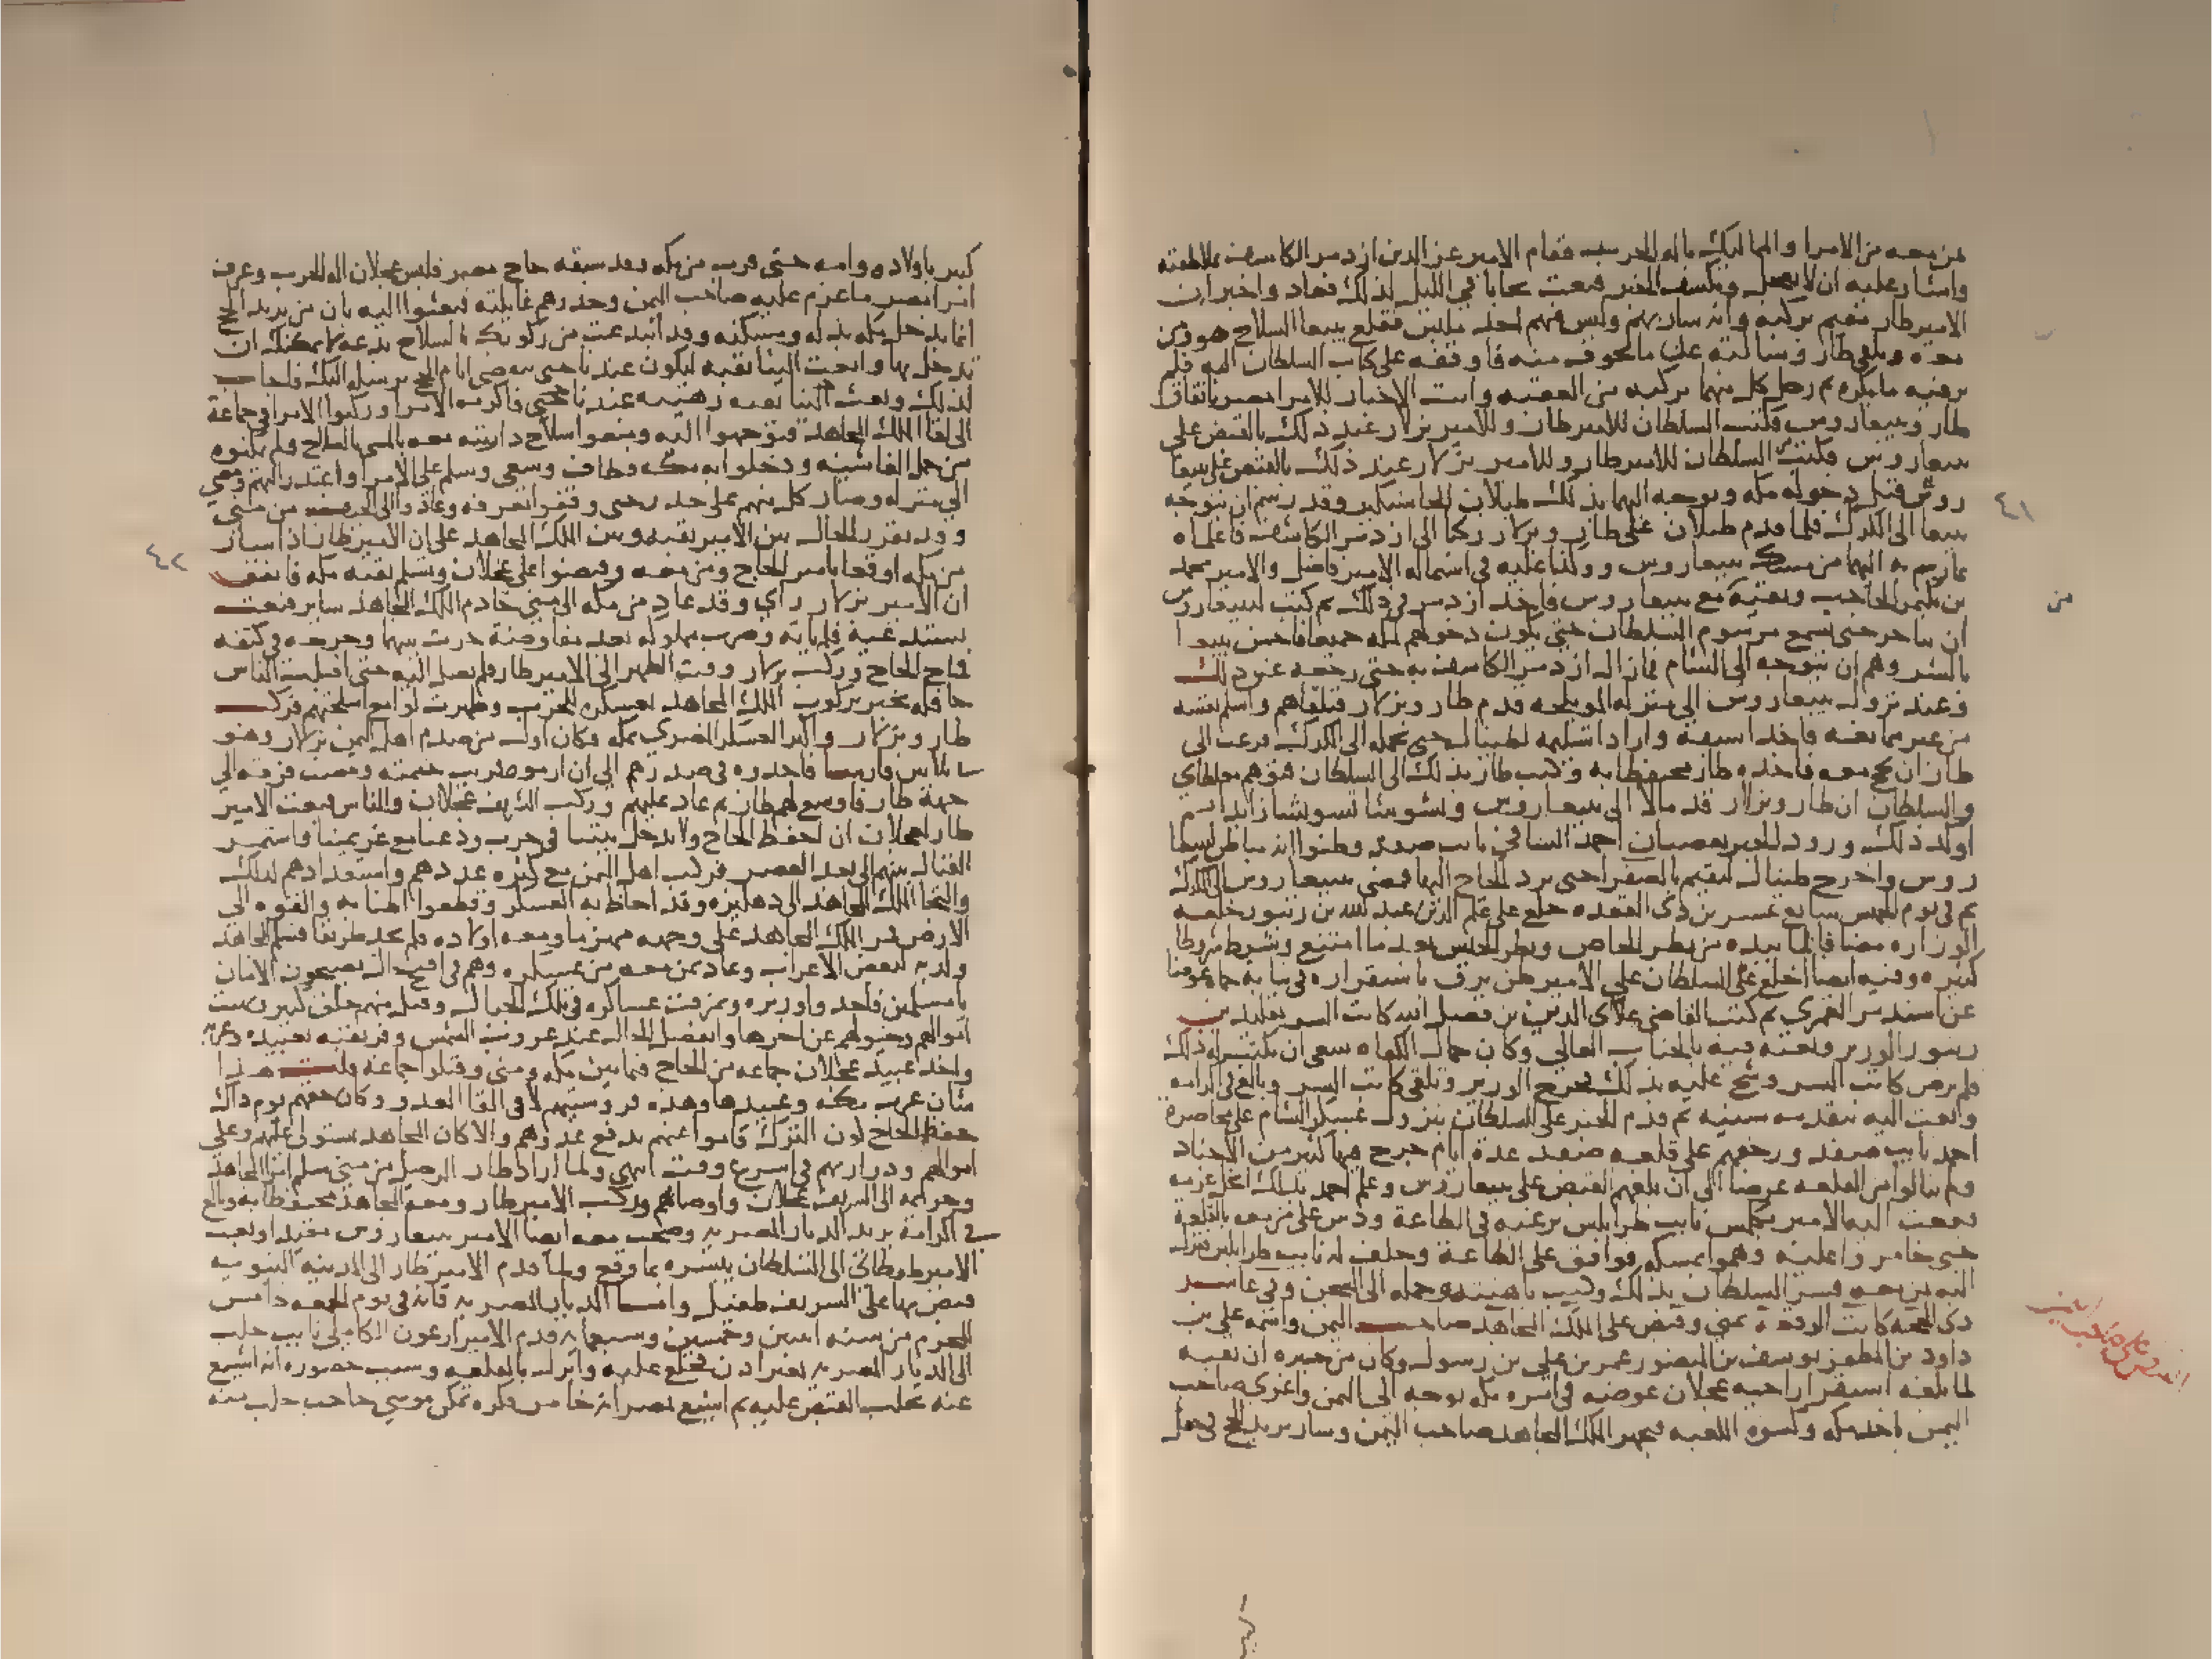 من معه من الامرا والمماليك باله الحرب فقام الامير عز الدين ازدمر الكاشف بملاطفته
واشار عليه ان لا يعجل وتكشف الخبر فبعث نجابا في الليل لذلك فعاد واخبر ان
الامير طاز مقيم بركبه وانه سار بهم وليس فيهم احد ملبس فقلع بيبغا السلاح هو ومن
معه وتلقى طاز وساله عن ما تخوف منه فاوقفه على كتاب السلطان اليه فلم
ير فيه ما يكره ثم رحل كل منهما بركبه من العقبه واتت الاخبار للامرا بمصر باتفاق
طاز وبيبغا روس فكتب السلطان للامير طاز وللامير بزلار عند ذلك بالقبض على
بيبغا روس فكتب السلطان للامير طاز وللامير بزلار عند ذلك بالقبض على بيبغا
روس قبل دخوله مكه وتوجه اليهما بذلك طيلان الجاشنكير وقد رسم ان يتوجه
بيبغا الى الكرك فلما قدم طيلان على طاز وبزلار ركبا الى ازدمر الكاشف فاعلماه
بما رسم به اليهما من مسك بيبغا روس ووكدا عليه في استماله الامير فاضل والامير محمد
بن بكتمر الحاجب وبقية مع بيبغا روس فاخذ ازدمر في ذلك ثم كتب لبيبغا روس
ان يتاخر حتى يسمع مرسوم السلطان حتى يكون دخولهم لمكه جميعا فاحس بيبغا
بالشر وهم ان يتوجه الى الشام فما زال ازدمر الكاشف به حتى رجعه عن ذلك
وعند نزول بيبغا روس الى منزله المويلحه قدم طاز وبزلار فتلقاهم واسلم نفسه
من غير ممانعه فاخذا سيفه وارادا تسليمه لطينال حتى يحمله الى الكرك فرغب الى
طاز ان يحج معه فاخذه طاز محتفظا به وكتب طاز بذلك الى السلطان فتوهم مغلطاي
والسلطان ان طاز وبزلار قد مالا الى بيبغا روس وتشوشا تشويشا زايدا ثم
اكد ذلك ورود الخبر بعصيان احمد الساقي نايب صفد وظنوا انه مباطن لبيبغا
روس واخرج طينال ليقيم بالصفرا حتى يرد الحاج اليها فيمضي ببيبغا روس الى الكرك
ثم في يوم الخميس سابع عشر من ذي القعده خلع على علم الدين عبد الله بن زنبور خلعه
الوزاره مضافا لما بيده من نظر الخاص ونظر الجيش بعد ما امتنع وشرط شروطا
كثيره وفيه ايضا اخلع على السلطان على الامير طنيرق باستقراره في نيابة حماه عوضا
عن اسندمر العمري ثم كتب القاضي علاي الدين بن فضل الله كاتب السر تقليد بن
زنبور الوزير ونعته فيه بالجناب العالي وكان جمال الكفاه سعى ان يكتب له ذلك
فلم يرض كاتب السر وشح عليه بذلك فخرج الوزير وتلقى كاتب السر وبالغ في اكرامه
وبعث اليه بتقدمه سنيه ثم قدم الخبر على السلطان بنزول عسكر الشام على محاصرة
احمد نايب صفد وزحفهم على قلعه صفد عدة ايام جرح فيها كثير من الاجناد
ولم ينالوا من القلعه غرضا الى ان بلغهم القبض على بيبغا روس وعلم احمد بذلك انحل عزمه
فبعث اليه الامير بكلمش نايب طرابلس يرغبه في الطاعة ودس على من معه بالقلعه
حتى خامروا عليه وهموا بمسكه فوافق على الطاعة وحلف له نايب طرابلس فنزل
اليه بمن معه فسر السلطان بذلك وكتب باهانته وحمله الى السجن وفي عاشر
ذي الحجه كانت الوقعة بمنى وقبض على الملك المجاهد صاحب اليمن واسمه علي بن
داود بن المظفر يوسف بن المنصور عمر بن علي بن رسول وكان من خبره ان ثقبه
لما بلغه استقرار اخيه عجلان عوضه في امره مكه توجه الى اليمن واغرى صاحب
اليمن باخذ مكه وكسوه الكعبه فتجهز الملك المجاهد صاحب اليمن وسار يريد الحج في جحفل
٤١
من
القبض على صاحب اليمن
كبير باولاده وامه حتى قرب من مكه وقد سبقه حاج مصر فلبس عجلان اله الحرب وعرف
امرا مصر ما عزم عليه صاحب اليمن وحذرهم غايلته فبعثوا اليه بان من يريد الحج
انما يدخل مكه بذله ومسكنه وقد ابتدعت من ركوبك بالسلاح بدعه لا يمكنك ان
تدخل بها وابعث الينا ثقبه ليكون عندنا حتى تنقضي ايام الحج نرسله اليك فاجاب
لذلك وبعث الينا ثقبه رهينه عندنا حتى فاكرمه الامرا وركبوا الامرا في جماعة
الى لقا الملك المجاهد فتوجهوا اليه ومنعوا سلاح داريته معه بالمشي بالسلاح ولم يمكنوه
من حمل الغاشيه ودخلوا به مكه وطاف وسعى وسلم على الامرا واعتذر اليهم ومضى
الى منزله وصار كل منهم على حذر حتى وقفوا بعرفه وعادوا الى الخيف من منى
وقد تقرر الحال بين الامير ثقبه وبين الملك المجاهد على ان الامير طاز اذا سار
من مكه اوقعا بامير الحاج ومن معه وقبضوا على عجلان وتسلم ثقبه مكه فاتفق
ان الامير بزلار راى وقد عاد من مكه الى منى خادم الملك المجاهد سايرا فبعث
يستدعيه فلم ياته وضرب مملوكه بعد مفاوضة جرت بينهما وجرحه في كتفه
فماج الحاج وركب بزلار وقت الظهر الى الامير طاز فلم يصل اليه حتى اقبلت الناس
جافله تخبر بركوب الملك المجاهد بعسكره للحرب وظهرت لوامع اسلحتهم فركب
طاز وبزلار واكبر العسكر المصري بمكه فكان اول من صدم اهل اليمن بزلار وهو
في ثلاثين فارسا فاخذوه في صدرهم الى ان ارموه قريب خيمته ومضت فرقه الى
جهة طاز فاوسع لهم طاز ثم عاد عليهم وركب الشريف عجلان والناس فبعث الامير
طاز لعجلان ان احفظ الحاج ولا تدخل بيننا في حرب ودعنا مع غريمنا فاستمر
القتال بينهم الى بعد العصر فركب اهل اليمن مع كثره عددهم واستعدادهم الذلك
والتجا الملك المجاهد الى دهليزه وقد احاط به العسكر وقطعوا اطنابه والقوه الى
الارض فمر الملك المجاهد على وجهه منهزما ومعه اولاده فلم يجد طريقا فسلم المجاهد
ولديه لبعض الاعراب وعاد بمن معه من عسكره وهم في اقبح حال يصيحون الامان
يا مسلمين فاخذوا وزيره وتمزقت عساكره في تلك الجبال وقتل منهم خلق كثير ونهبت
اموالهم وخيولهم عن اخرها وانفصل الحال عند غروب الشمس وفر ثقبه بعبيده وعربه
واخذ عبيد عجلان جماعه من الحاج فيما بين مكه ومنى وقتلوا جماعة قلت هذا
شان عرب مكه وعبيدها وهذه فروسيتهم لا في لقا العدو وكان حقهم يوم ذاك
حفظ الحاج لكون الترك قاموا عنهم بدفع عدوهم والا كان المجاهد يستولى عليهم وعلى
اموالهم وذراريهم في اسرع وقت انتهى ولما اراد طاز الرحيل من منى سلم امر المجاهد
وحرمه الى الشريف عجلان واوصاه بهم وركب الامير طاز ومعه المجاهد محتفظا به وبالغ
في اكرامه يريد الديار المصريه وصحب معه ايضا الامير بيبغا روس مقيدا وبعث
الامير طقطاي الى السلطان يبشره بما وقع ولما قدم الامير طاز الى المدينه النبويه
قبض بها على الشريف طفيل واما الديار المصريه فانه في يوم الجمعه خامس
المحرم من سنه اثنين وخمسين وسبعمايه قدم الامير ارغون الكاملي نايب حلب
الى الديار المصريه بغير اذن فخلع عليه وانزل بالقلعه وسبب حضوره انه اشيع
عنه بحلب القبض عليه ثم اشيع بمصر انه خامر فكره تمكن موسى حاجب حلب منه
٤٢